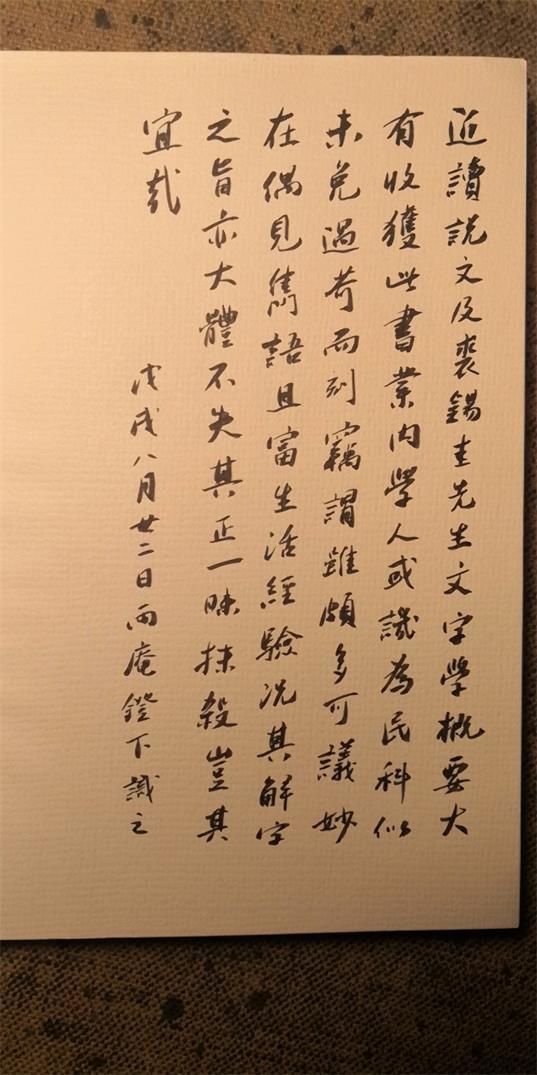 近讀說文及裘錫圭先生文字學概要大
有收獲此書業内學人或譏為民科似
未免過苛而刻竊謂雖頗多可議妙
在偶見雋語且富生活經驗况其解字
之旨亦大體不失其正一昧抹殺豈其
宜哉
戊戌八月廿二日雨庵鐙下識之